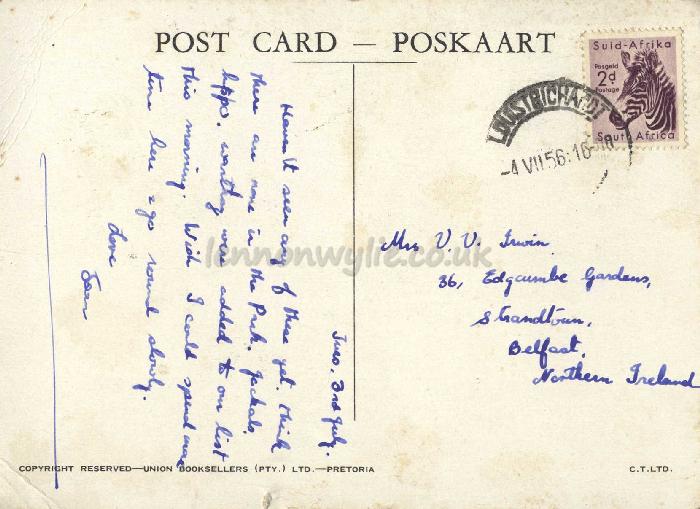 POST CARD — POSKAART
Suid-Afrika
Posgeld
2d
Postage
South Africa
LOUIS TRICHARDT
-4 VII 56.16
Tues. 3rd July.
Haven't seen any of these yet. think
there are none in the Park. Jackals,
hippo, warthog were added to our list
this morning. Wish I could spend more
time here & go round slowly.
Love
Mrs V. V. Irwin
36, Edgcumbe Gardens,
Strandtown,
Belfast,
Northern Ireland
lennonwylie.co.uk
COPYRIGHT RESERVED—UNION BOOKSELLERS (PTY.) LTD.—PRETORIA
C.T.LTD.